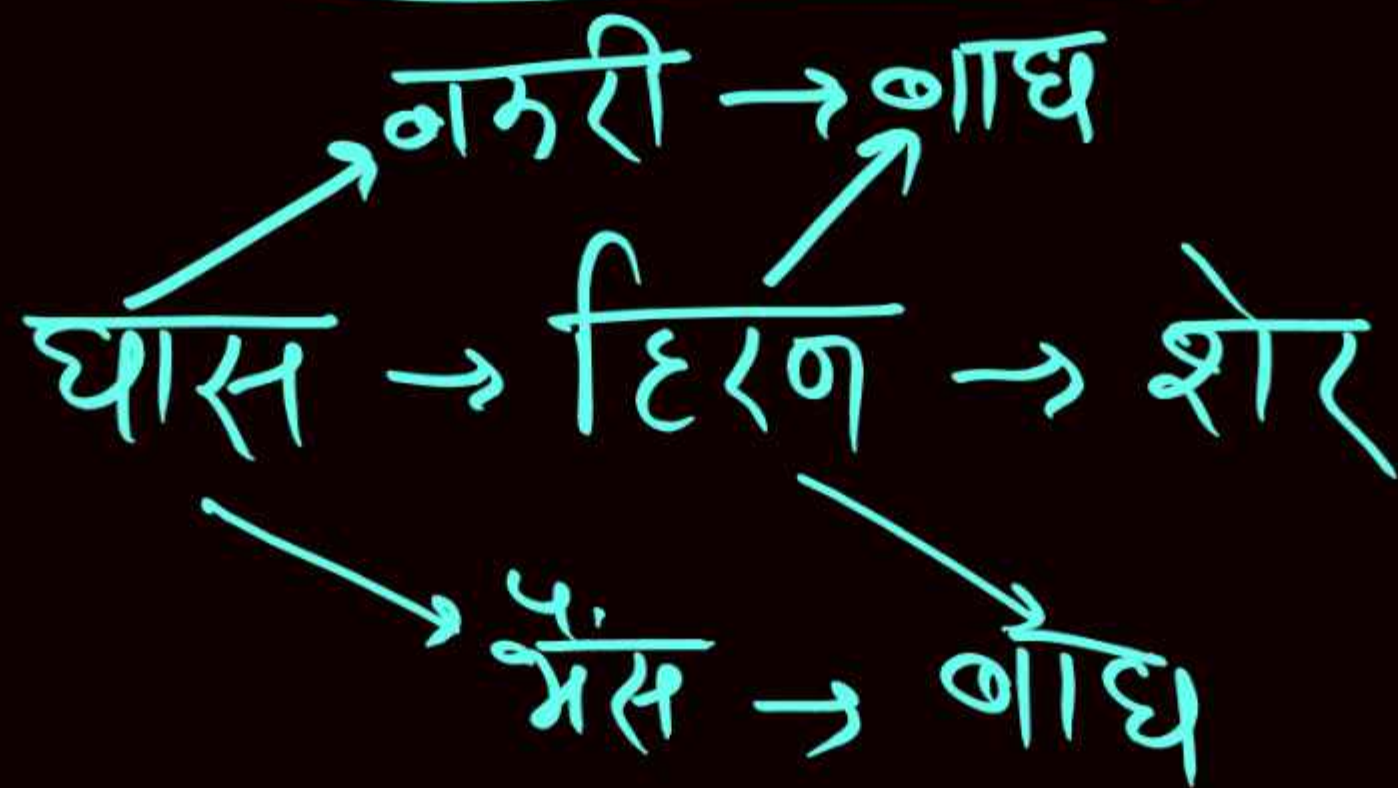 बकरी → बाघ
घास → हिरण → शेर
भैंस → बाघ